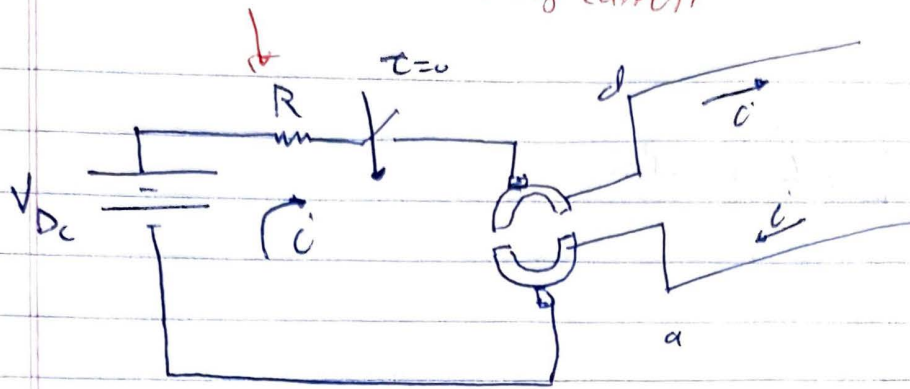 R
t=0
d
i
V_Dc
i
i
a